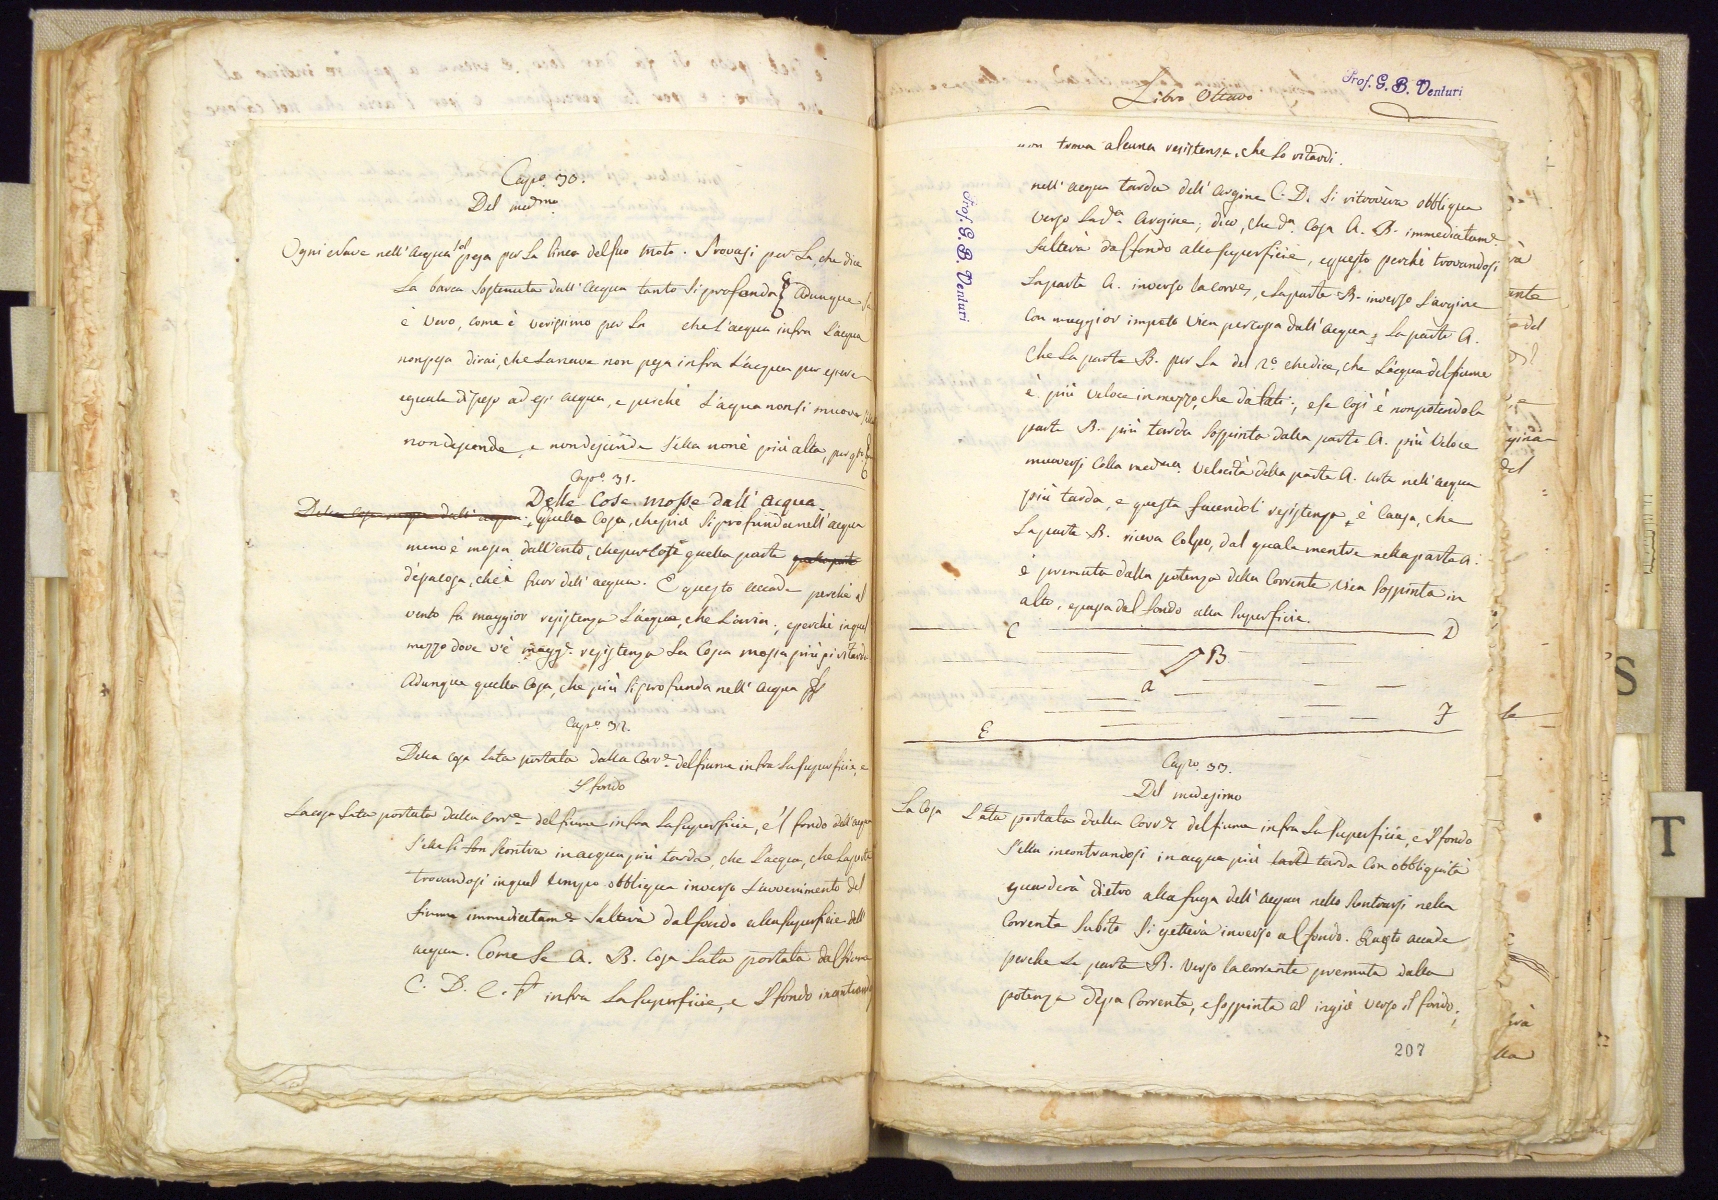 Capo. 30.
Del medmo.
Ogni Nave nell'acqua sol pesa per La linea del suo moto. Provasi per La, che dice
La barca sostenuta dall'acqua tanto si profonda & Adunque
è vero, come è verissimo per La che l'acqua infra L'acqua
non pesa dirai, che La nave non pesa infra L'acqua per essere
eguale di peso ad ess' acqua, e poichè L'acqua non si muove
non discende, e non discende s'ella non è più alta, per
Capo. 31.
Delle Cose mosse dall'acqua.
Delle Cose mosse dall'acqua. Quella Cosa, che più si profunda nell'acqua
meno è mossa dall vento, che per Cosa quella parte
d'essa cosa, che è fuor dell'acqua. E questo accade perchè al
vento fa maggior resistenza L'acqua, che L'aria; e perchè in quel
mezzo dove v'è maggr. resistenza La Cosa mossa più si ritarda
Adunque quella Cosa, che più si profunda nell'acqua
Capo. 32.
Della Cosa Lata portata dalla Corre. del fiume infra La superficie, e
Il fondo
La cosa Lata portata dalla Corre. del fiume infra La superficie, e 'l fondo dell'acqua
s'ella si scontra in acqua più tarda, che L'acqua, che La porta
trovandosi in quel tempo obbliqua inverso L'avvenimento del
fiume immediatame. salterà dal fondo alla superficie dell'
acqua. Come Se A. B. Cosa Lata portata dal fiume
C. D. E. F infra La superficie, e Il fondo incontrando
Libro Ottavo
Prof. G. B. Venturi
non trova alcuna resistenza, che Lo ritardi.
Prof. G. B. Venturi
nell'acqua tarda dell'argine C. D. Si ritroverà obbliqua
verso La da. Argine, dico, che da. Cosa A. B. immediatame.
Salterà dal fondo alla superficie, e questo perchè trovandosi
La parte A. inverso la corre, e La parte B. inverso L'argine
Con maggior impeto vien percossa dall'acqua La parte A.
Che La parte B. per La del 2o. che dice, che L'acqua del fiume
è più veloce in mezzo, che da lati; e se Così è non potendo la
parte B. più tarda sospinta dalla parte A. più veloce
muoversi Colla medma. velocità della parte A. urta nell'acqua
più tarda, e questa facendoli resistenza è Causa, che
La parte B. riceva Colpo, dal quale mentre nella parte A.
è premuta dalla potenza della Corrente vien sospinta in
alto, e passa dal fondo alla superficie.
C D
B
a
E F
Capo. 33.
Del medesimo
La Cosa Lata portata dalla Corre. del fiume infra La superficie, e Il fondo
s'ella incontrandosi in acqua più tard tarda Con obbliquità
guarderà dietro alla fuga dell'acqua nello scontrarsi nella
Corrente Subito Si getterà inverso al fondo. Questo accade
perche La parte B. verso la corrente premuta dalla
potenza d'essa Corrente, e sospinta al ingiù verso il fondo;
207
S
T